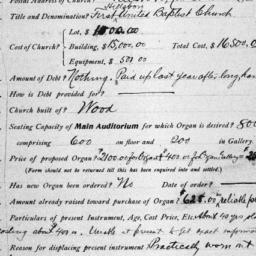 Postal Address of Church?
Title and Denomination? First United Baptist Church
Hillsboro
Lot, $ 1000.00
Cost of Church? Building, $ 15,000.00 Total Cost, $ 16,500.0
Equipment, $ 500.00
Amount of Debt? Nothing. Paid up last year after long
How is Debt provided for?
Church built of? Wood
Seating Capacity of Main Auditorium for which Organ is desired? 800
comprising 600 on floor and 200 in Gallery
Price of proposed Organ? $2100 or for Organ $
(Form should not be returned till this has been enquired into and settled.)
Has new Organ been ordered? No Date of order?
Amount already raised toward purchase of Organ? $625.00 reliable
Particulars of present Instrument, Age, Cost Price, Etc. About 40 yrs old
about 40 Unable at present to get exact information
Reason for displacing present instrument Practically worn out